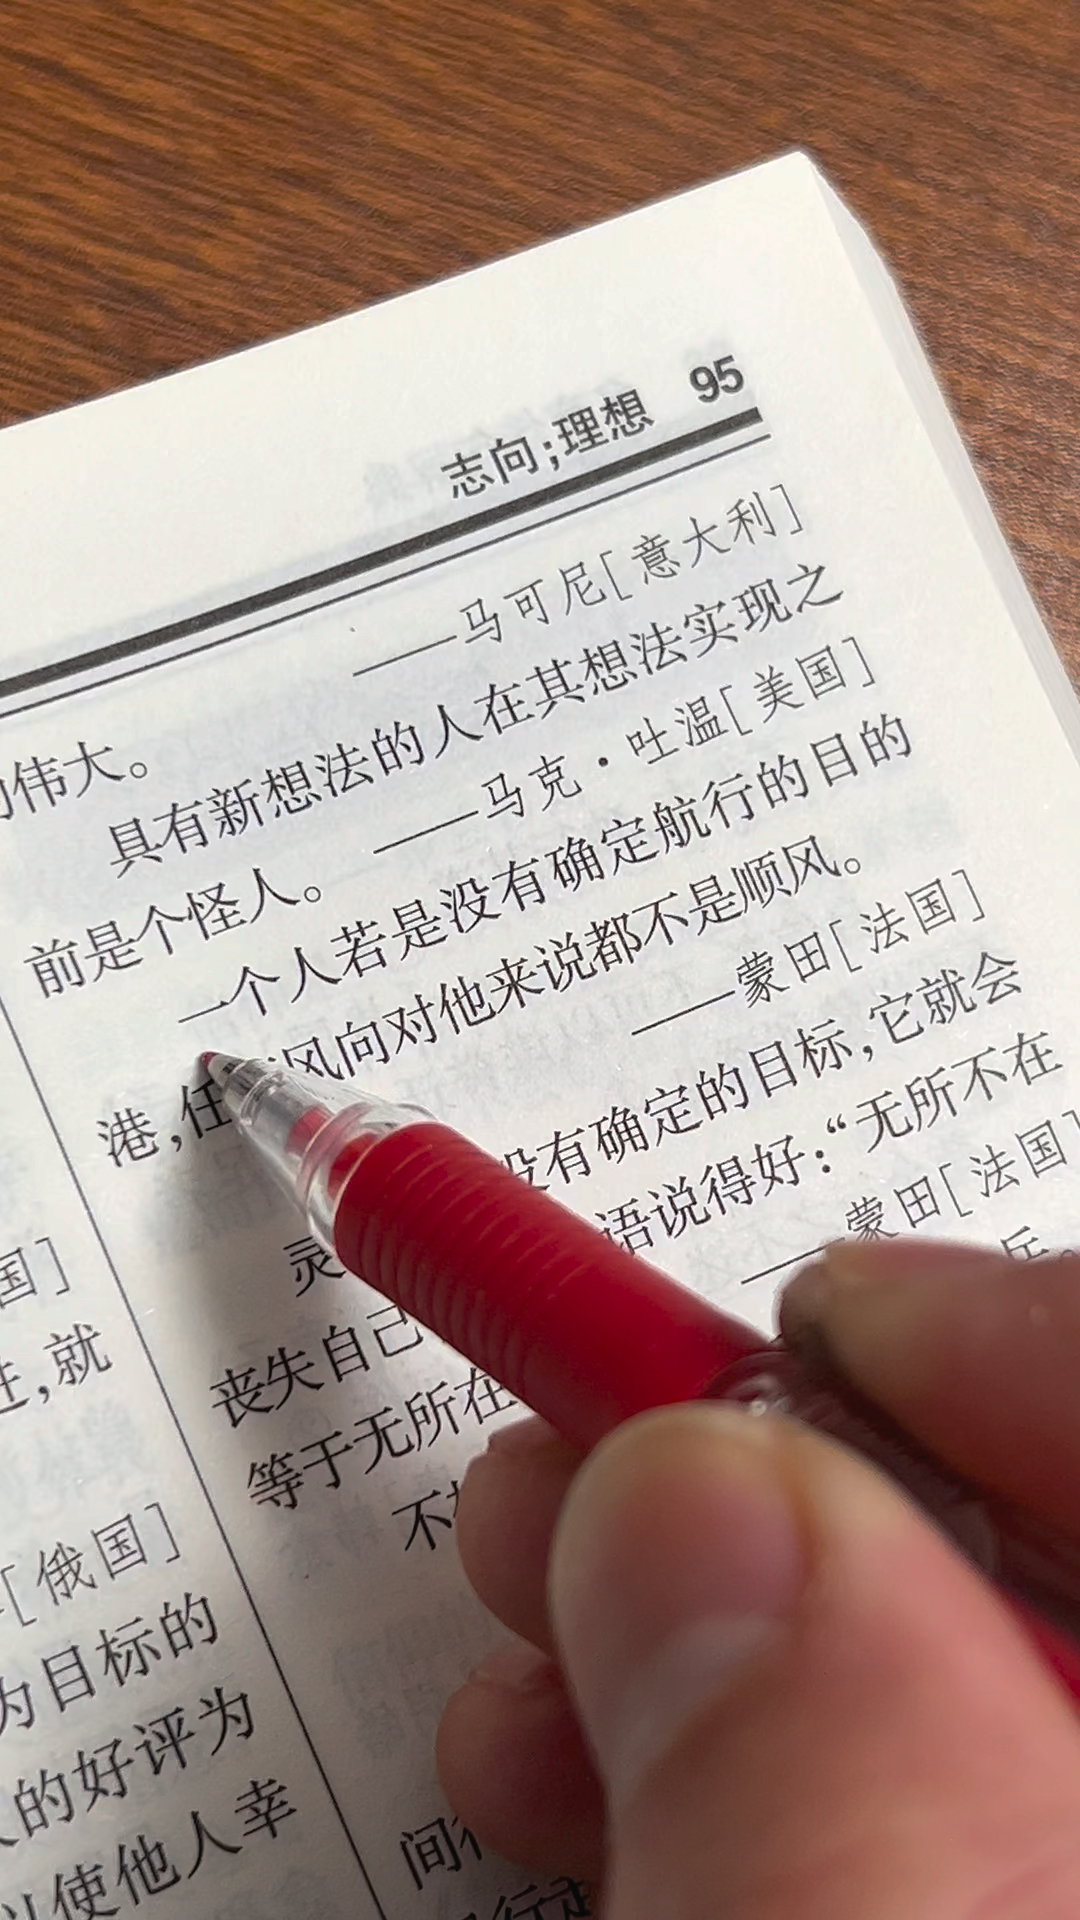 志向;理想 95
伟大。
国]
就
[俄国]
为目标的
的好评为
使他人幸
——马可尼[意大利]
具有新想法的人在其想法实现之
前是个怪人。
——马克·吐温[美国]
一个人若是没有确定航行的目的
港,任 风向对他来说都不是顺风。
——蒙田[法国]
灵 没有确定的目标,它就会
丧失自己 语说得好:“无所不在
等于无所在
——蒙田[法国]
不 兵。
间
行走